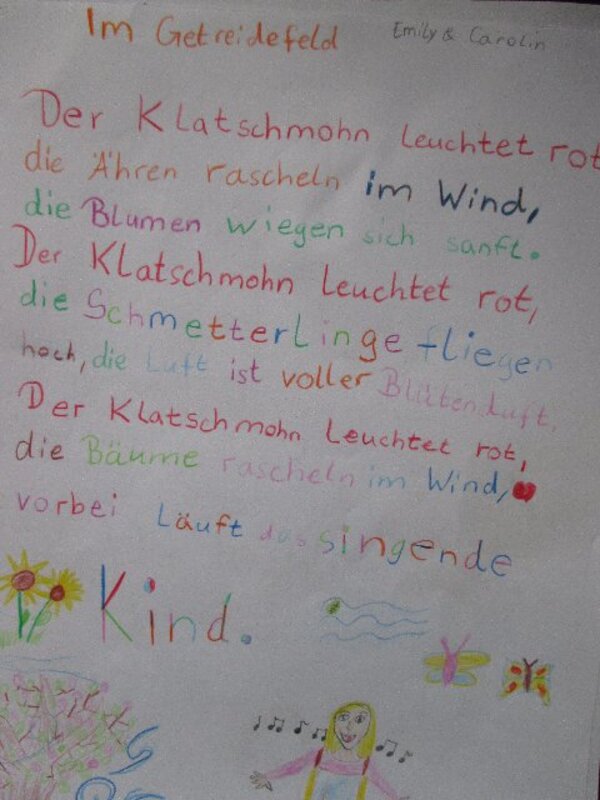 Im Getreidefeld
Emily & Carolin
Der Klatschmohn leuchtet rot
die Ähren rascheln im Wind,
die Blumen wiegen sich sanft.
Der Klatschmohn leuchtet rot,
die Schmetterlinge fliegen
hoch, die Luft ist voller Blütenduft.
Der Klatschmohn leuchtet rot,
die Bäume rascheln im Wind,
vorbei läuft das singende
Kind.